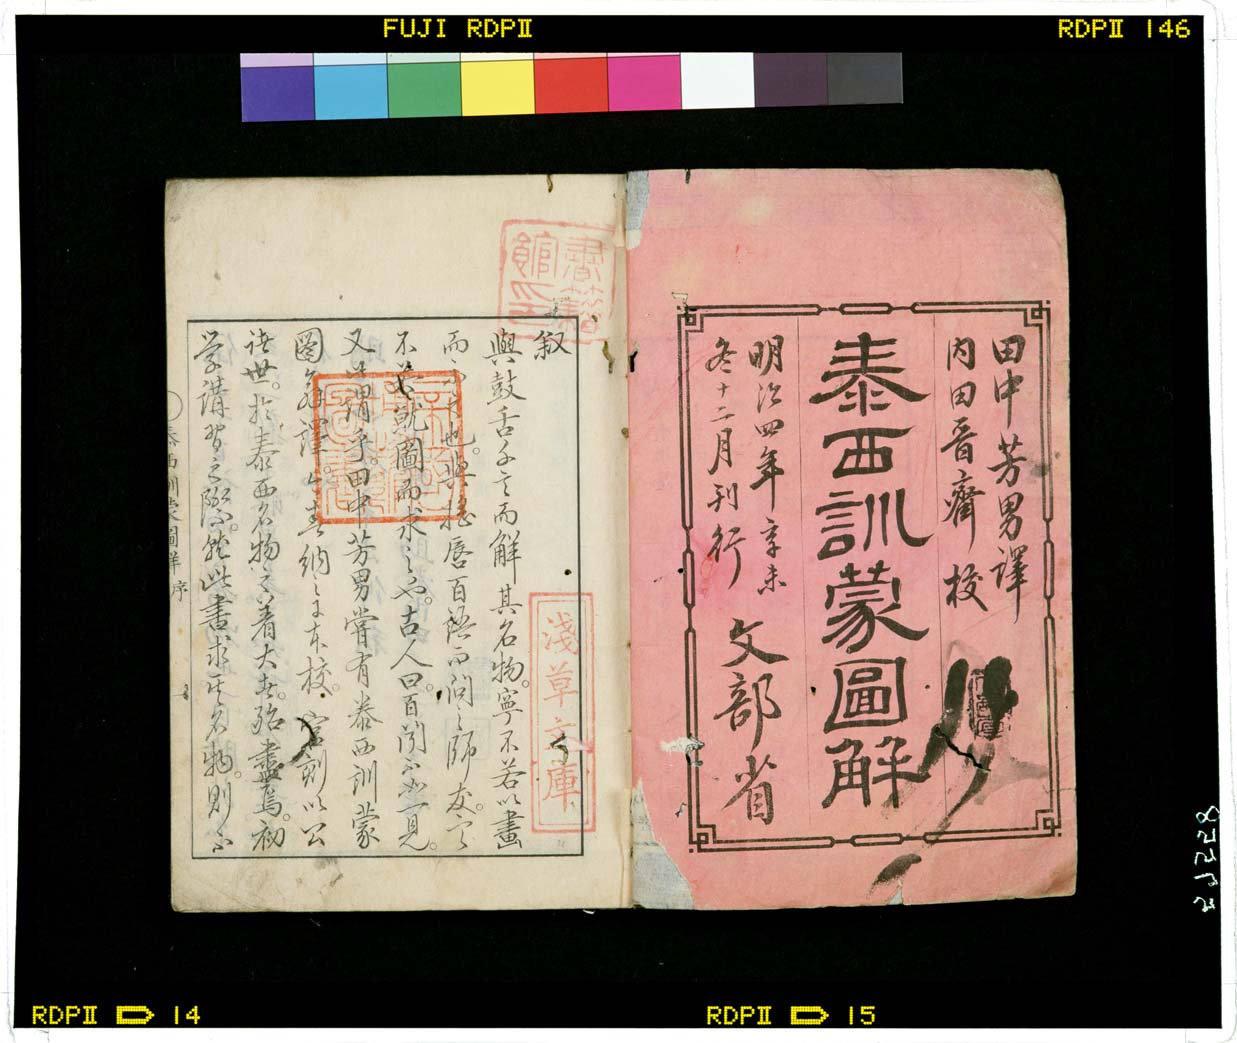 FUJI RDPⅡ
RDPⅡ 146
田中芳男譯
内田晋齋校
泰西訓蒙圖解
明治四年辛未
冬十二月刊行
文部省
書籍館印
淺草文庫
叙
與鼓舌千言而解其名物。寧不若以畫
而也。與搖唇百語而問之師友。
不若就圖而求之也。古人曰。百聞不如一見。
又謂乎。田中芳男嘗有泰西訓蒙
圖譯。納之校。官刻以公
諸世。於泰西名物之着大者。殆盡焉。初
学講習之際。此書求其名物。則不
泰西訓蒙圖解 序
RDPⅡ 14
RDPⅡ 15